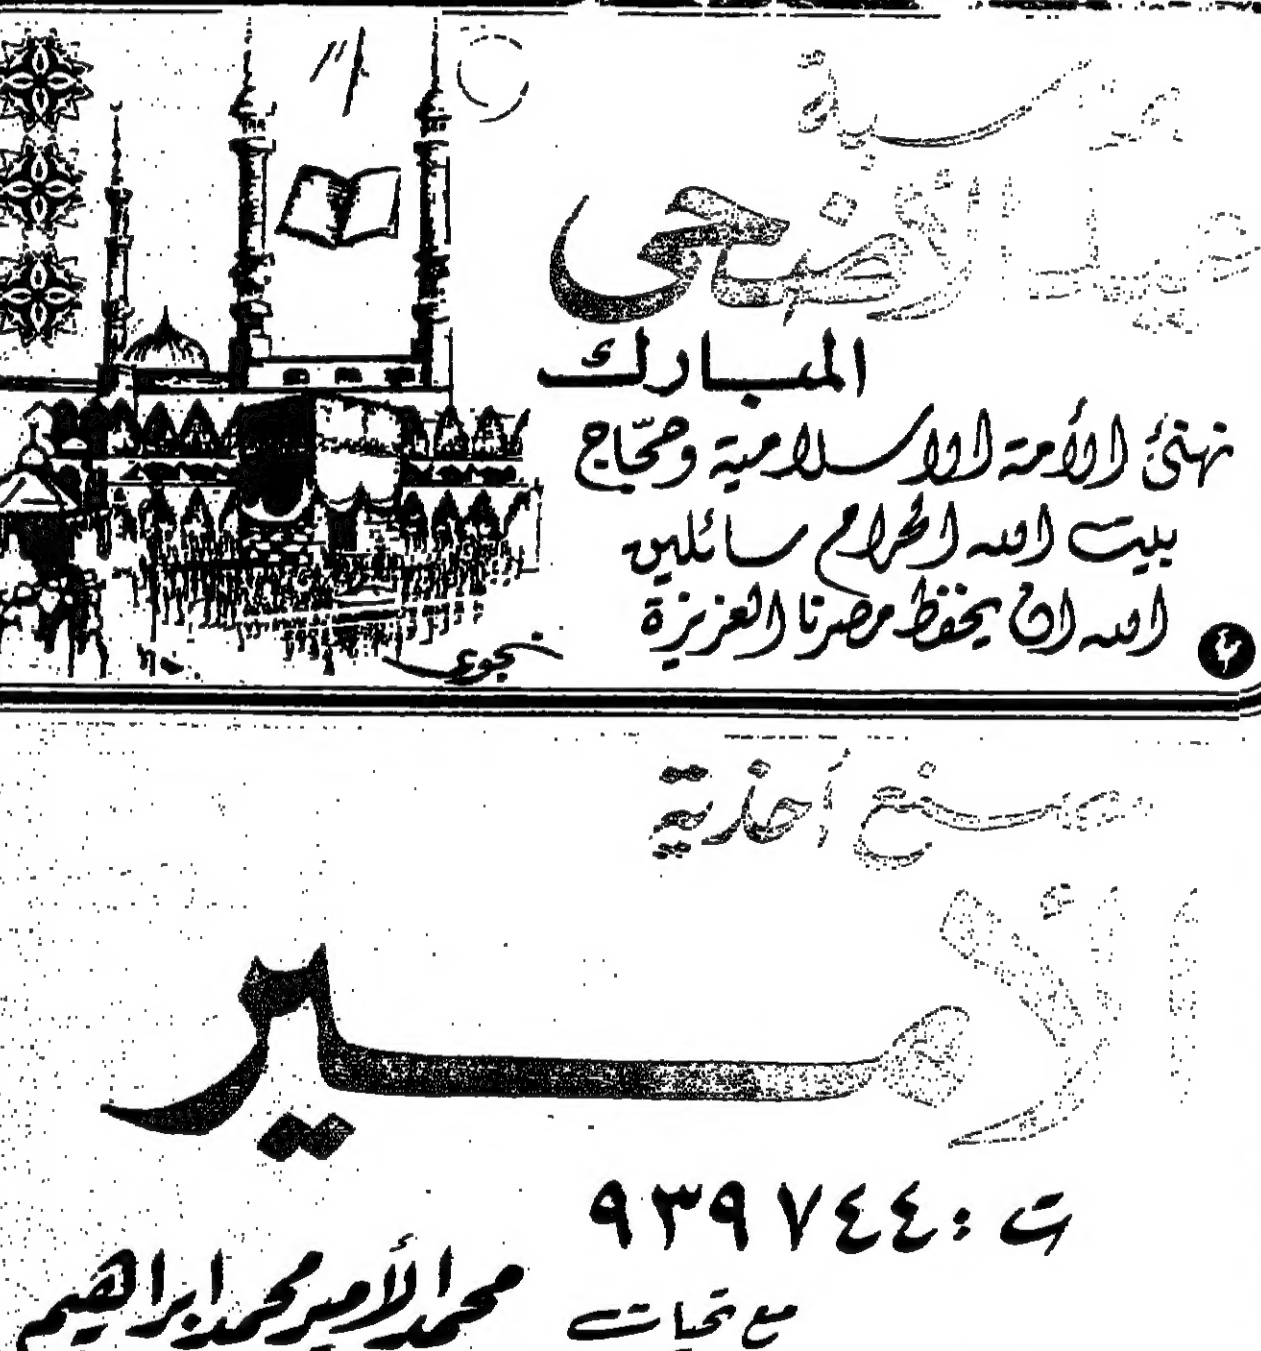 بمناسبة
عيد الأضحى
المبارك
نهنئ الأمة الاسلامية وحجّاج
بيت الله الحرام سائلين
الله ان يحفظ مصرنا العزيزة
نجوى
مصنع أحذية
الأمير
ت : ٩٣٩٧٤٤
مع تحيات
محمد الأمير محمد ابراهيم